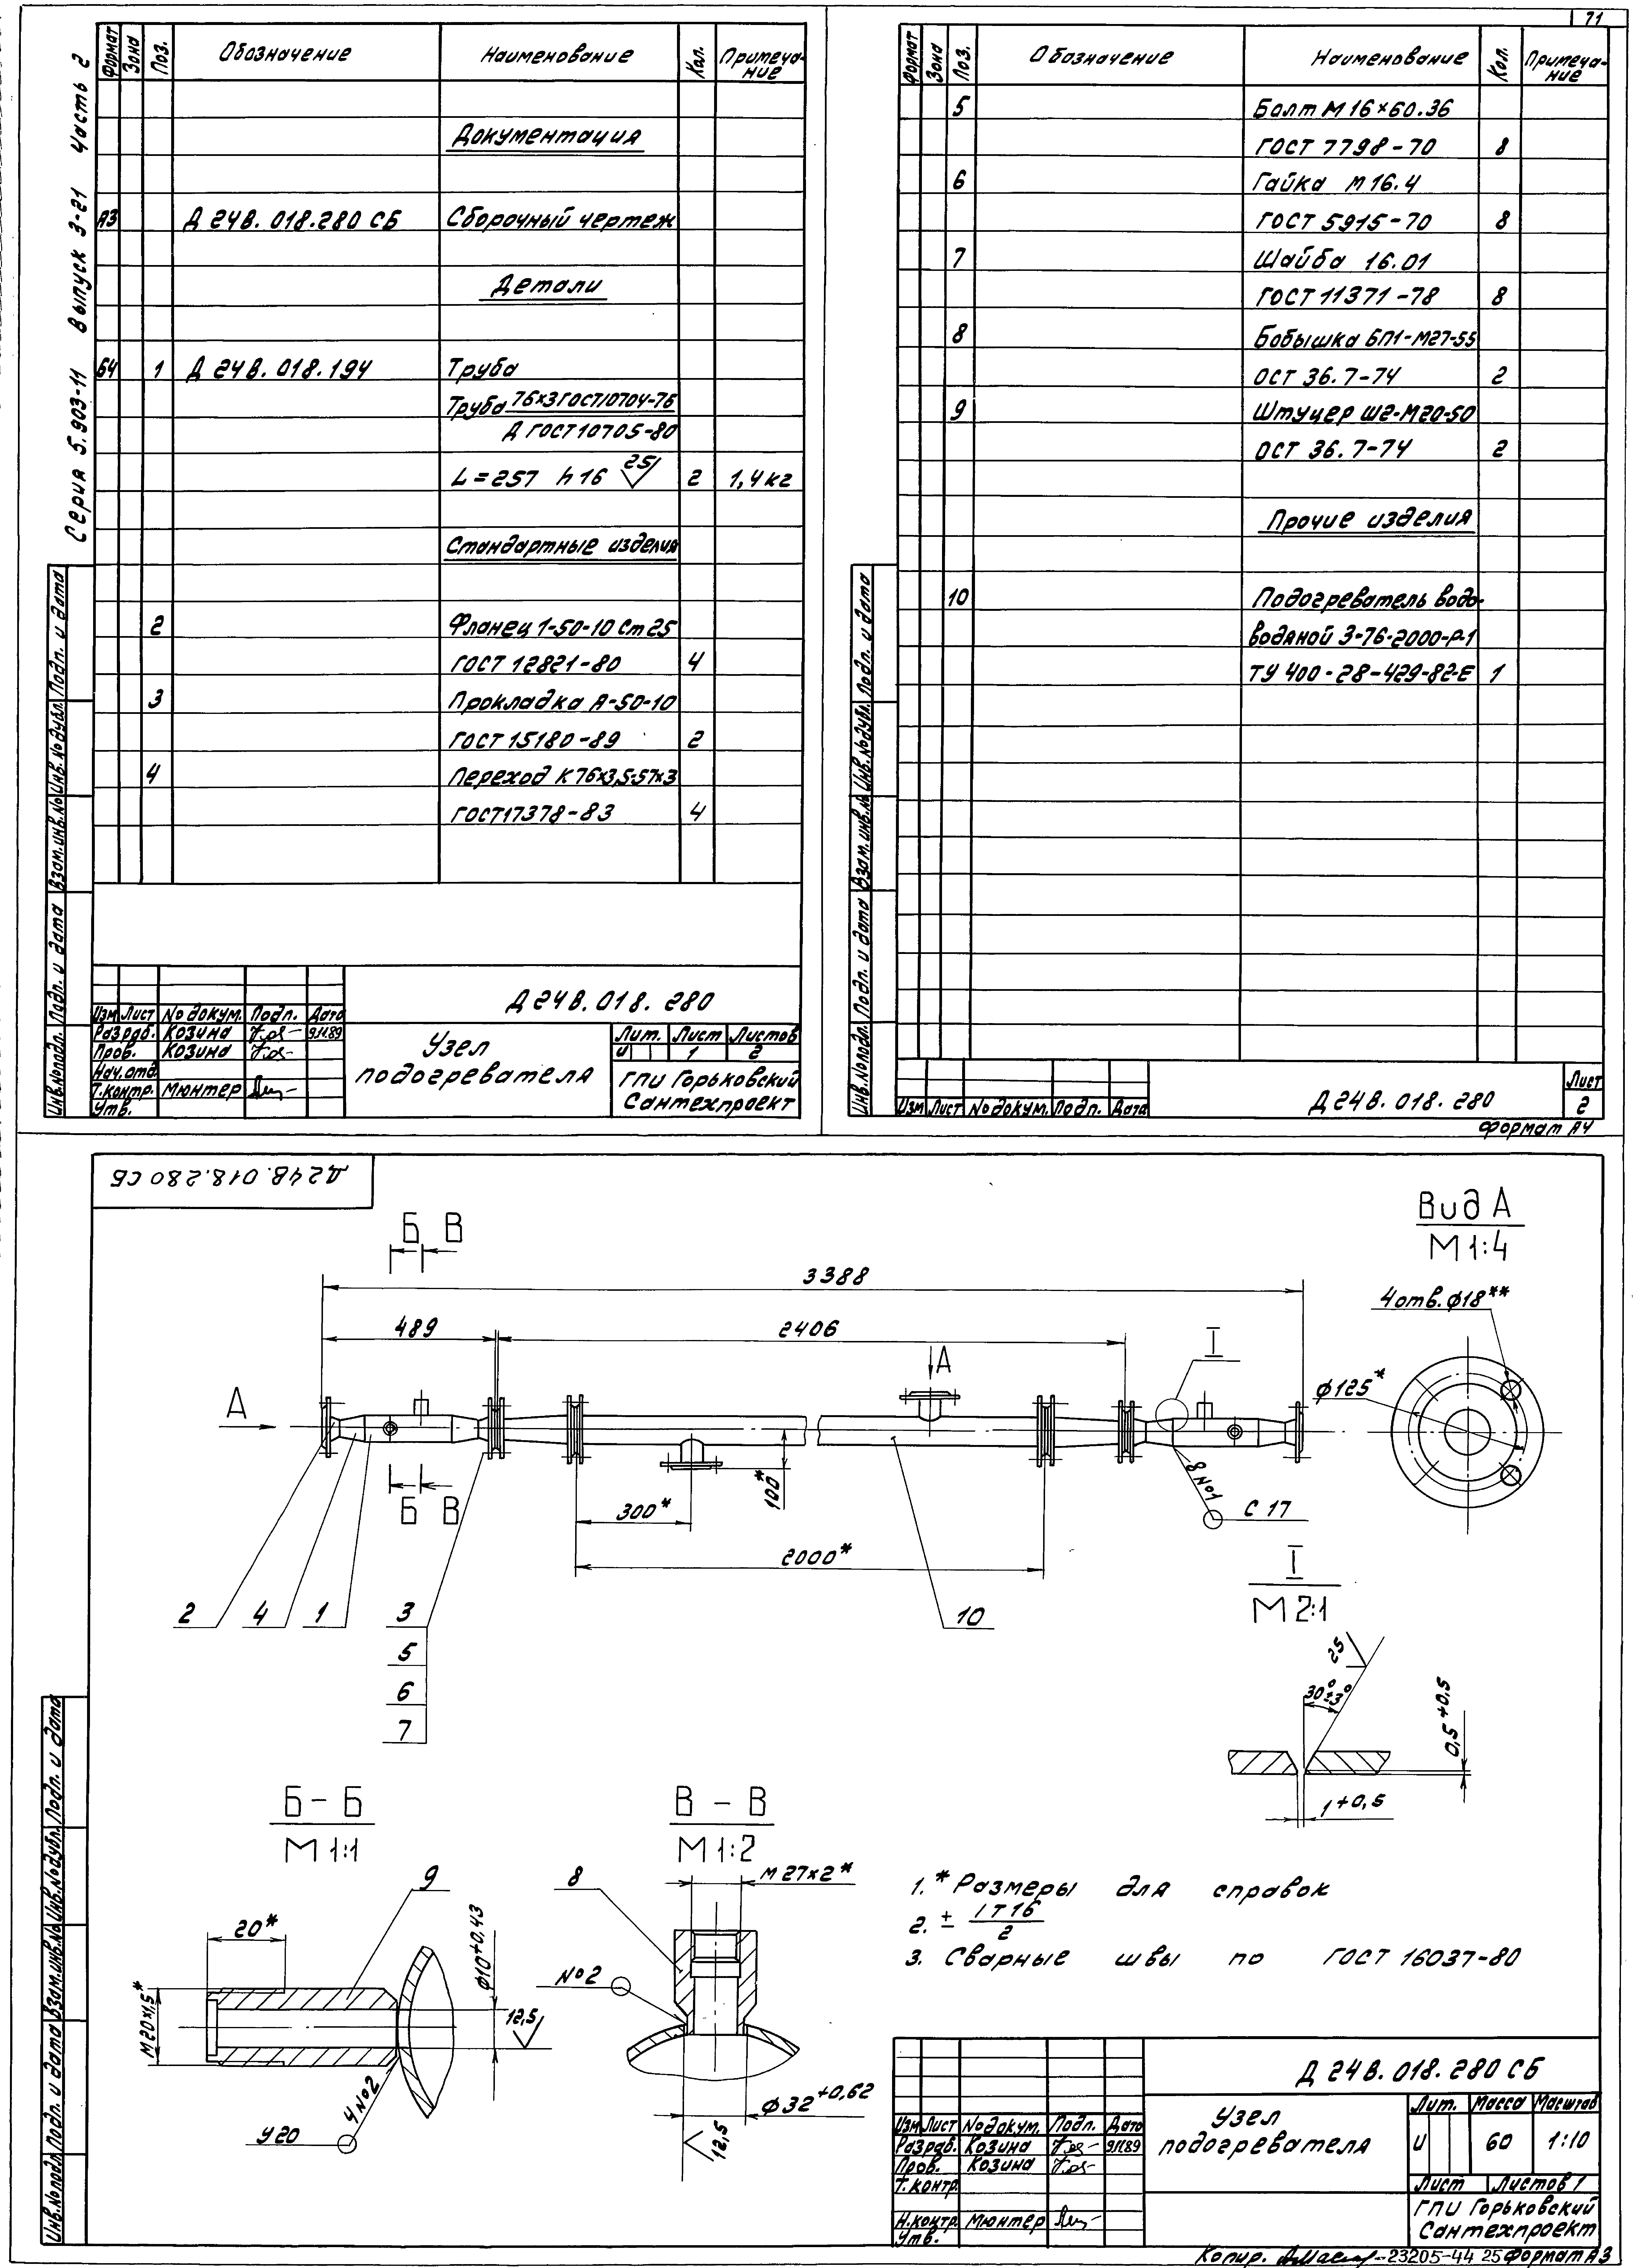 71
Серия 5.903-11 Выпуск 3-21 Часть 2
Формат Зона Поз. Обозначение Наименование Кол. Примеча-
ние
Документация
А3 Д 24В. 018.280 СБ Сборочный чертеж
Детали
Б4 1 Д 24В. 018.194 Труба
Труба 76×3 ГОСТ10704-76
Д ГОСТ10705-80
L=257 h16 25 2 1,4кг
Стандартные изделия
2 Фланец 1-50-10 Ст25
ГОСТ 12821-80 4
3 Прокладка А-50-10
ГОСТ 15180-89 2
4 Переход К76×3,5-57×3
ГОСТ17378-83 4
Инв.№подл. Подп. и дата Взам.инв.№ Инв.№дубл. Подп. и дата
Д24В.018. 280
Изм Лист № докум. Подп. Дата
Разраб. Козина 9.11.89
Пров. Козина
Нач.отд.
Т.контр. Мюнтер
Утв.
Узел
подогревателя
Лит. Лист Листов
И 1 2
ГПИ Горьковский
Сантехпроект
Формат Зона Поз. Обозначение Наименование Кол. Примеча-
ние
5 Болт М16×60.36
ГОСТ 7798-70 8
6 Гайка М16.4
ГОСТ 5915-70 8
7 Шайба 16.01
ГОСТ 11371-78 8
8 Бобышка БП1-М27-55
ОСТ 36.7-74 2
9 Штуцер Ш2-М20-50
ОСТ 36.7-74 2
Прочие изделия
10 Подогреватель водо-
водяной 3-76-2000-Р-1
ТУ 400-28-429-82-Е 1
Инв.№подл. Подп. и дата Взам.инв.№ Инв.№дубл. Подп. и дата
Изм Лист № докум. Подп. Дата
Д24В. 018. 280
Лист
2
Формат А4
Д24В.018.280 СБ
Б В
3388
489
2406
А
А
I
Б В
300*
100*
2000*
8 №1
С 17
2
4
1
3
5
6
7
10
Вид А
М 1:4
4отв.ф18**
ф125*
I
М 2:1
25
30°±3°
0,5+0,5
1+0,5
Б-Б
М 1:1
9
20*
М20×1,5*
ф10+0,43
12,5
4 №2
У20
В-В
М 1:2
8
М27×2*
№2
ф32+0,62
12,5
1. * Размеры для справок
2. ± IT16
2
3. Сварные швы по ГОСТ 16037-80
Инв.№подл. Подп. и дата Взам.инв.№ Инв.№дубл. Подп. и дата
Д 24В. 018. 280 СБ
Изм Лист № докум. Подп. Дата
Разраб. Козина 9.11.89
Пров. Козина
Т.контр.
Н.контр. Мюнтер
Утв.
Узел
подогревателя
Лит. Масса Масштаб
И 60 1:10
Лист Листов 1
ГПИ Горьковский
Сантехпроект
Копир. 23205-44 25 Формат А3